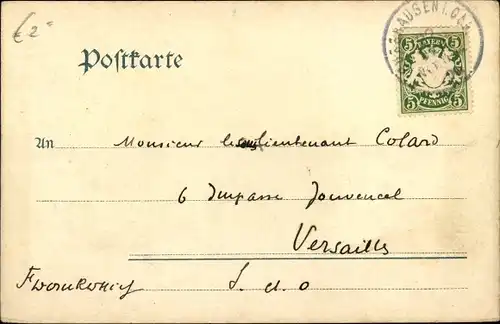 € 2=
HAUSEN I. O
BAYERN
5 5
5 PFENNIG 5
Postkarte
An Monsieur le lieutenant Colard
6 Impasse Jouvencel
Versailles
S. et. O